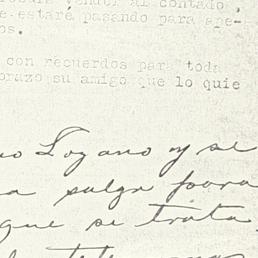 vender al contado,
e estaré pasando para ape-
os.
con recuerdos para toda
brazo su amigo que lo quie
Lozano y se
a salga para
que se trata